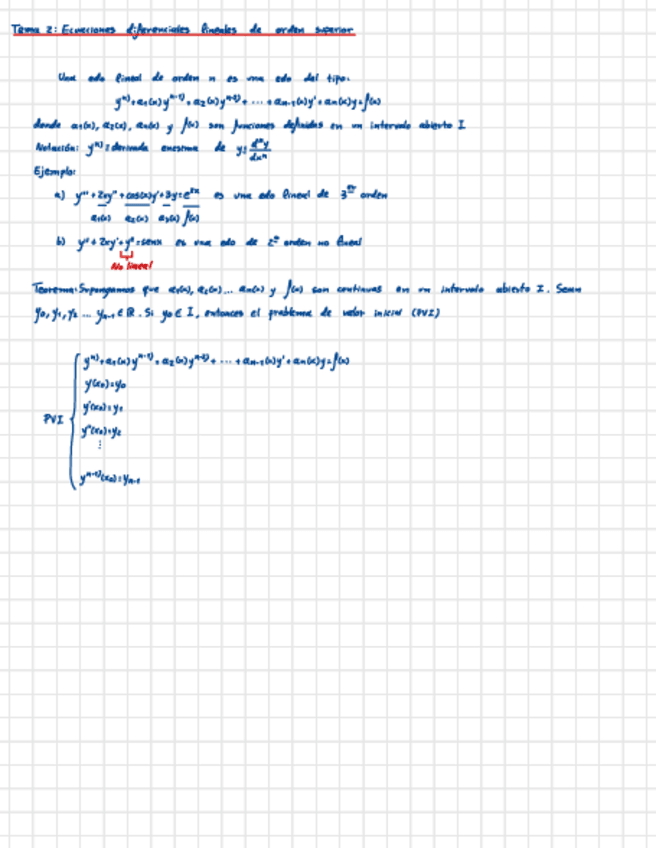 Tema 2: Ecuaciones diferenciales lineales de orden superior
Una edo lineal de orden n es una edo del tipo:
y^(n) + a₁(x)y^(n-1) + a₂(x)y^(n-2) + ... + aₙ₋₁(x)y' + aₙ(x)y = f(x)
donde a₁(x), a₂(x), aₙ(x) y f(x) son funciones definidas en un intervalo abierto I
Notación: y^(n) = derivada enesima de y = dⁿy/dxⁿ
Ejemplo:
a) y''' + 2xy'' + cos(x)y' + 3y = e^(2x) es una edo lineal de 3er orden
a₁(x) a₂(x) a₃(x) f(x)
b) y'' + 2xy' + y² = senx es una edo de 2º orden no lineal
No lineal
Teorema: Supongamos que a₁(x), a₂(x)... aₙ(x) y f(x) son continuas en un intervalo abierto I. Sean
y₀, y₁, y₂ ... yₙ₋₁ ∈ ℝ. Si y₀ ∈ I, entonces el problema de valor inicial (PVI)
y^(n) + a₁(x)y^(n-1) + a₂(x)y^(n-2) + ... + aₙ₋₁(x)y' + aₙ(x)y = f(x)
y(x₀) = y₀
y'(x₀) = y₁
PVI
y''(x₀) = y₂
⋮
y^(n-1)(x₀) = yₙ₋₁